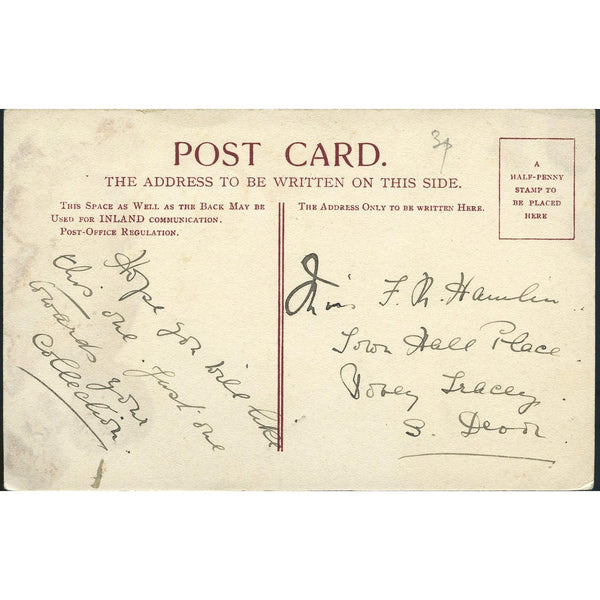 3d
POST CARD.
THE ADDRESS TO BE WRITTEN ON THIS SIDE.
A
HALF-PENNY
STAMP TO
BE PLACED
HERE
THIS SPACE AS WELL AS THE BACK MAY BE
USED FOR INLAND COMMUNICATION.
POST-OFFICE REGULATION.
THE ADDRESS ONLY TO BE WRITTEN HERE.
Hope you will like
this one. Just one
towards your
Collection.
Miss F. N. Hamlin
Town Hall Place
Bovey Tracey
S. Devon